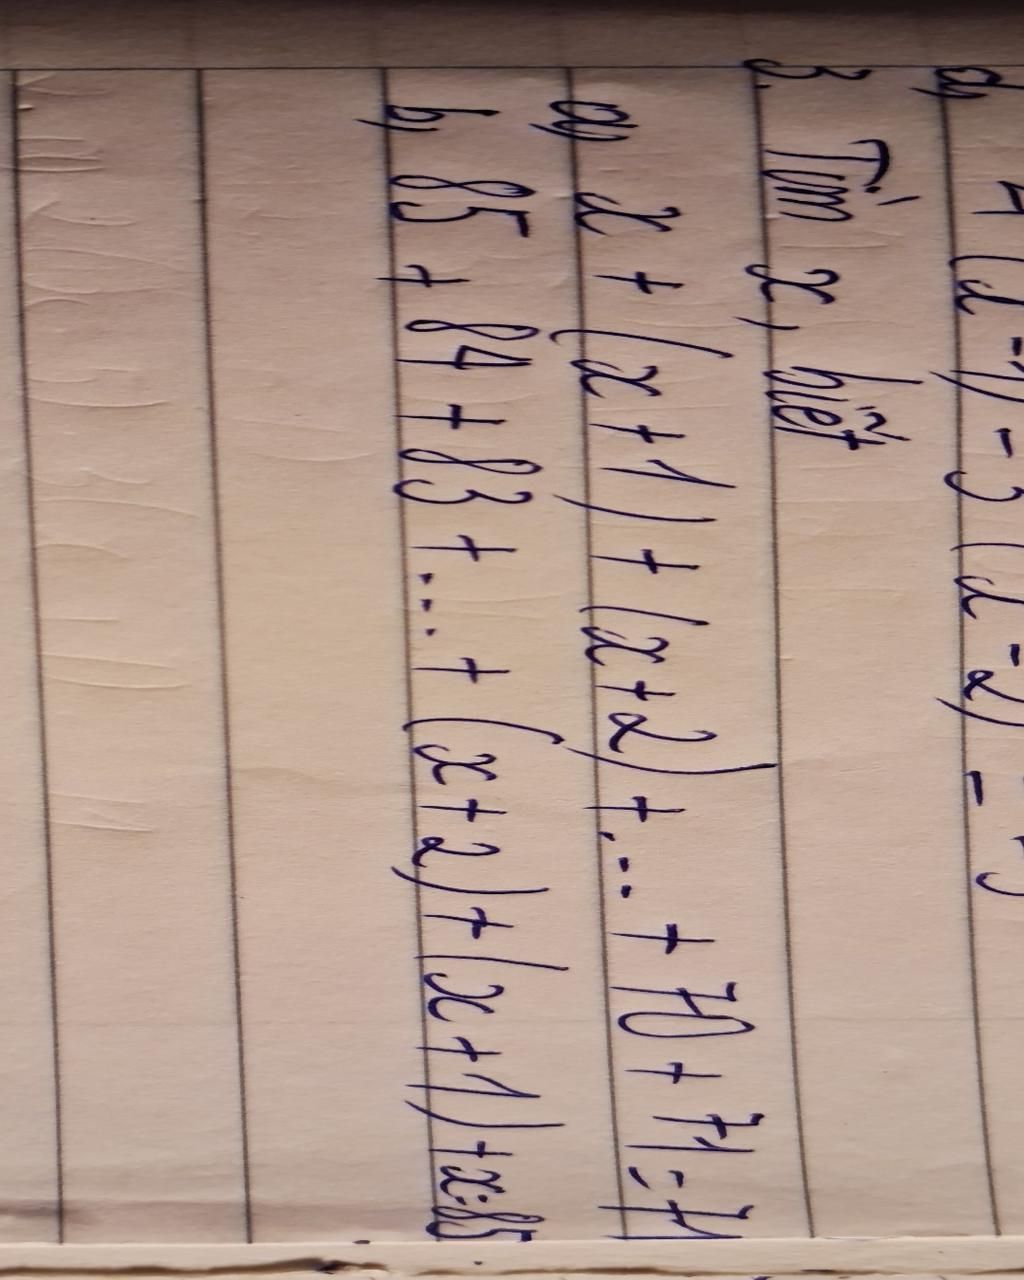 a, 4(x-1) - 3(x-2) = - 5
3. Tìm x, biết
a, x + (x+1) + (x+2) + ... + 70 + 71 = 71
b, 85 + 84 + 83 + ... + (x+2) + (x+1) + x = 85.